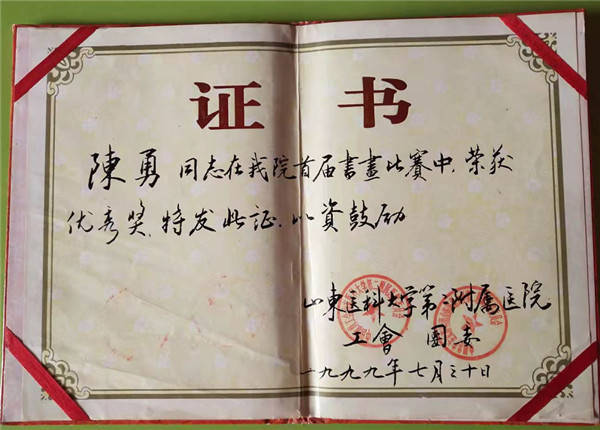 证书
陳勇 同志在我院首届書畫比赛中,荣获
优秀奖,特发此证,以资鼓励
山東医科大学第二附属医院
工會 團委
一九九九年七月三十日